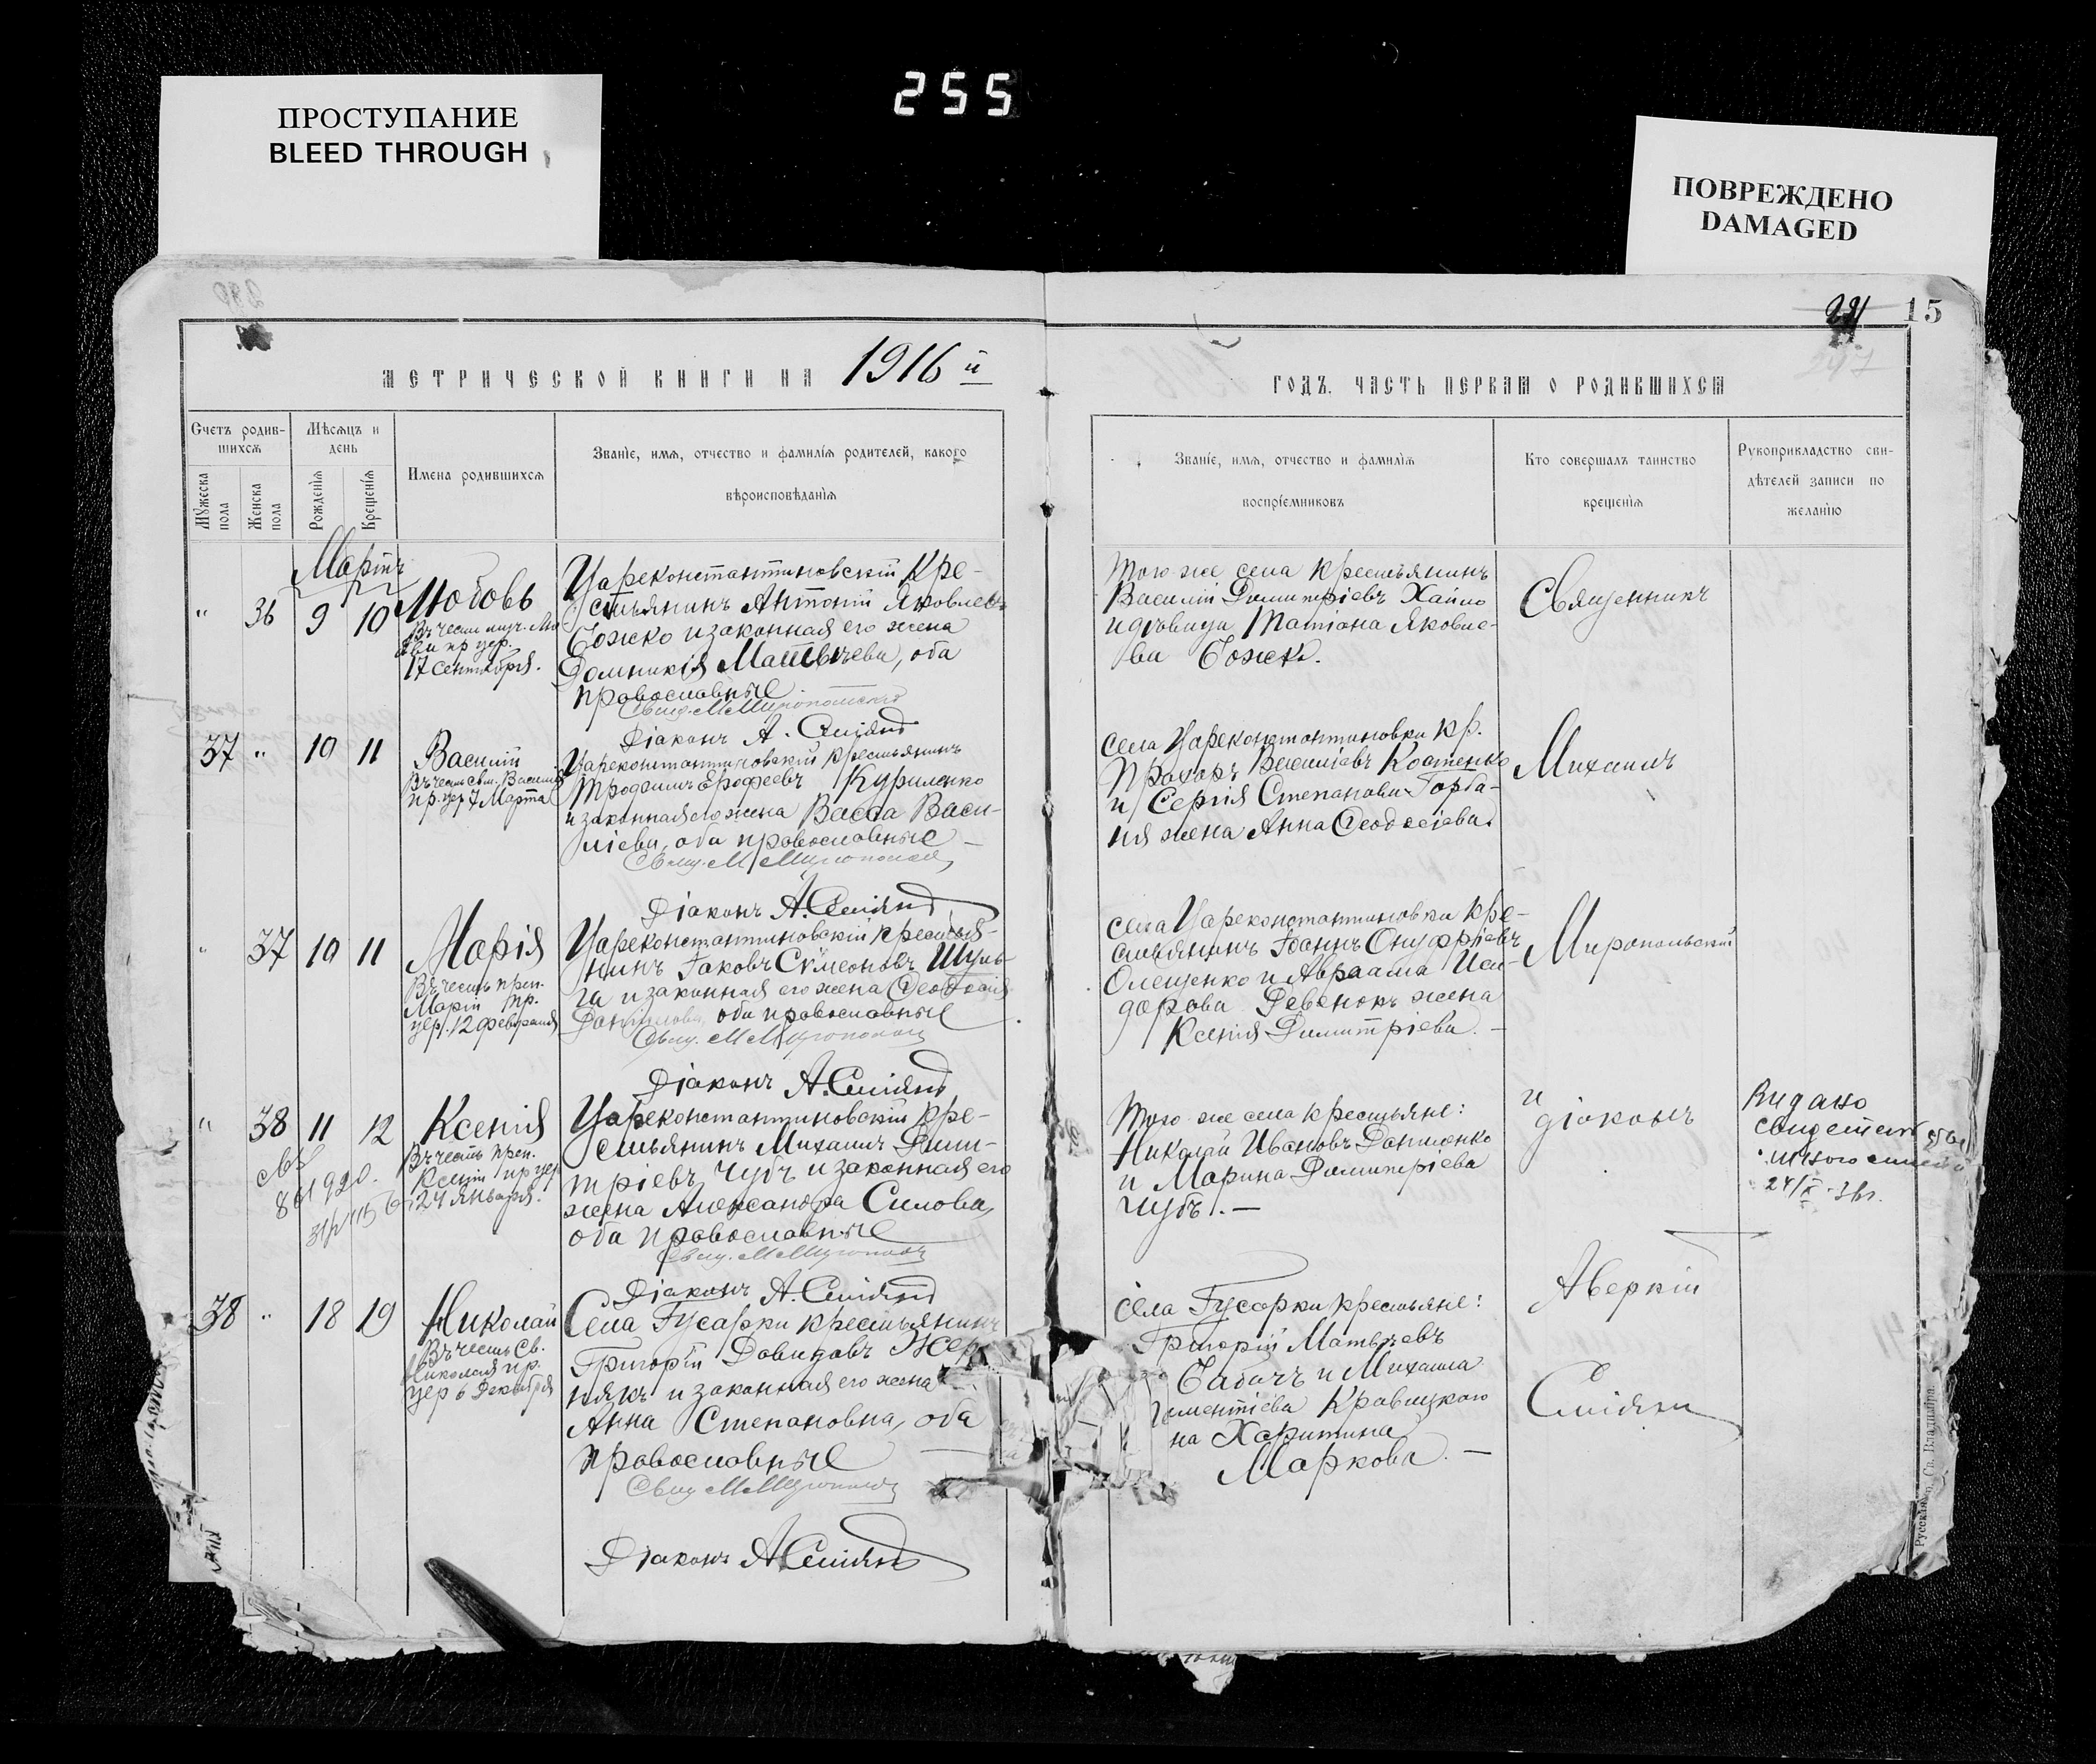 255
ПРОСТУПАНИЕ
BLEED THROUGH
ПОВРЕЖДЕНО
DAMAGED
221 15
МЕТРИЧЕСКОЙ КНИГИ НА 1916 й
ГОДЪ. ЧАСТЬ ПЕРВАЯ О РОДИВШИХСЯ
Счетъ родив-
шихся
Мужеска
пола
Женска
пола
Мѣсяцъ и
день
Рожденія
Крещенія
Имена родившихся
Званіе, имя, отчество и фамилія родителей, какого
вѣроисповѣданія
Званіе, имя, отчество и фамилія
воспріемниковъ
Кто совершалъ таинство
крещенія
Рукоприкладство сви-
дѣтелей записи по
желанію
Мартъ
" 36 9 10 Любовь
Въ честь муч. Лю
бви пр цер.
17 Сентября.
Цареконстантиновскій Кре-
стьянинъ Антоній Яковлевъ
Божко и законная его жена
Домникія Матвѣева, оба
православные
Свящ. М Миропольскій
Діаконъ А. Сміянъ
Того-же села крестьянинъ
Василій Димитріевъ Хайло
и дѣвица Татіана Яковле-
ва Божко.
Священникъ
37 " 10 11 Василій
Въ честь свм. Василія
пр. цер 7 Марта
Цареконстантиновскій крестьянинъ
Трофимъ Ерофеевъ Куриленко
и законная его жена Васса Васи-
ліева, оба православные
Свящ. М Миропольскій
Діаконъ А. Сміянъ
села Цареконстантиновки кр.
Прохоръ Васильевъ Костенко
и Сергія Степанова Горба-
ня жена Анна Ѳеодосіева.
Михаилъ
" 37 10 11 Марія
Въ честь преп.
Маріи пр.
цер. 12 февраля
Цареконстантиновскій крестья-
нинъ Іаковъ Сѵмеоновъ Шуль-
га и законная его жена Ѳеодосія
оба православные
Свящ. М Миропольскій
Діаконъ А. Сміянъ
села Цареконстантиновки кре-
стьянинъ Іоаннъ Онуфріевъ
Олещенко и Авраама Иси-
дорова Ревенокъ жена
Ксенія Димитріева. -
Миропольскій
" 38 11 12 Ксенія
Въ честь преп.
Ксеніи пр цер
24 января.
Цареконстантиновскій кре-
стьянинъ Михаилъ Дими-
тріевъ Чубъ и законная его
жена Александра Силова,
оба православные
Свящ. М Миропольскій
Діаконъ А. Сміянъ
Того-же села крестьяне:
Николай Ивановъ Даниленко
и Марина Димитріева
Чубъ. —
и
діаконъ
Видано
24/X
38 " 18 19 Николай
Въ честь Св.
Николая пр.
цер 6 Декабря
Села Гусарки крестьянинъ
Григорій Давидовъ
някъ и законная его жена
Анна Степановна, оба
православные
Свящ М Миропольскій
Діаконъ А Сміянъ
села Гусарки крестьяне:
Григорій Матвѣевъ
Бабичъ и Михаила
Кравицкаго
на Харитина
Маркова. —
Аверкій
Сміянъ
Св. Владиміра.